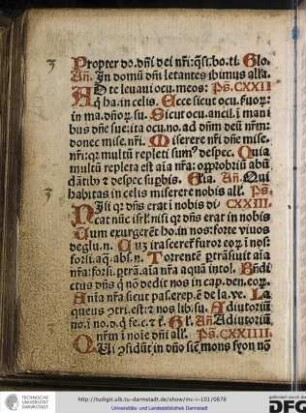 Propter do. dñi dei nr̃i: q̃si. bo. ti. Glo.
Añ. In domũ dñi letantes ibimus alľa.
Ad te leuaui ocu. meos: Ps. CXXII
q̃ ha. in celis. Ecce sicut ocu. seruor̃:
in ma. dño⁊. su. Sicut ocu. ancil. i mani
bus dñe sue: ita ocu. no. ad dñm deũ nr̃m:
donec mise. nr̃i. Miserere nr̃i dñe mise.
nr̃i: q⁊ multũ repleti sum⁹ despec. Quia
multũ repleta est aĩa nr̃a: opprobriũ abũ
dãtib⁹ ⁊ despec supbis. Añ. Qui
habitas in celis miserere nobis alľ. Ps.
Nisi q⁊ dñs erat i nobis di CXXIII.
cat nũc isrľ: nisi q⁊ dñs erat in nobis
Cum exurgerẽt ho. in nos: forte viuos
deglu. n. Cuz irasceret̃ furor eo⁊ i nos:
forsi. aq̃. abs. n. Torrentẽ ptrãsiuit aĩa
nr̃a: forsi. ptrã. aĩa nr̃a aquã intol. Bñdi
ctus dñs q̃ nõ dedit nos in cap. den. eo⁊.
Aĩa nr̃a sicut passer. ep. ẽ de la. ve. La
queus ztri. est: ⁊ nos lib. su. Adiutoriũ
no. i no. d. q̃ fe. c. ⁊ t. Gľ. Añ. Adiutoriũ
nr̃m i noĩe dñi alľ. Ps. CXXIIII.
Qui ɔfidũt in dño sic̃ mons syon nõ
http://tudigit.ulb.tu-darmstadt.de/show/inc-ii-101/0676
Universitäts- und Landesbibliothek Darmstadt
DFG